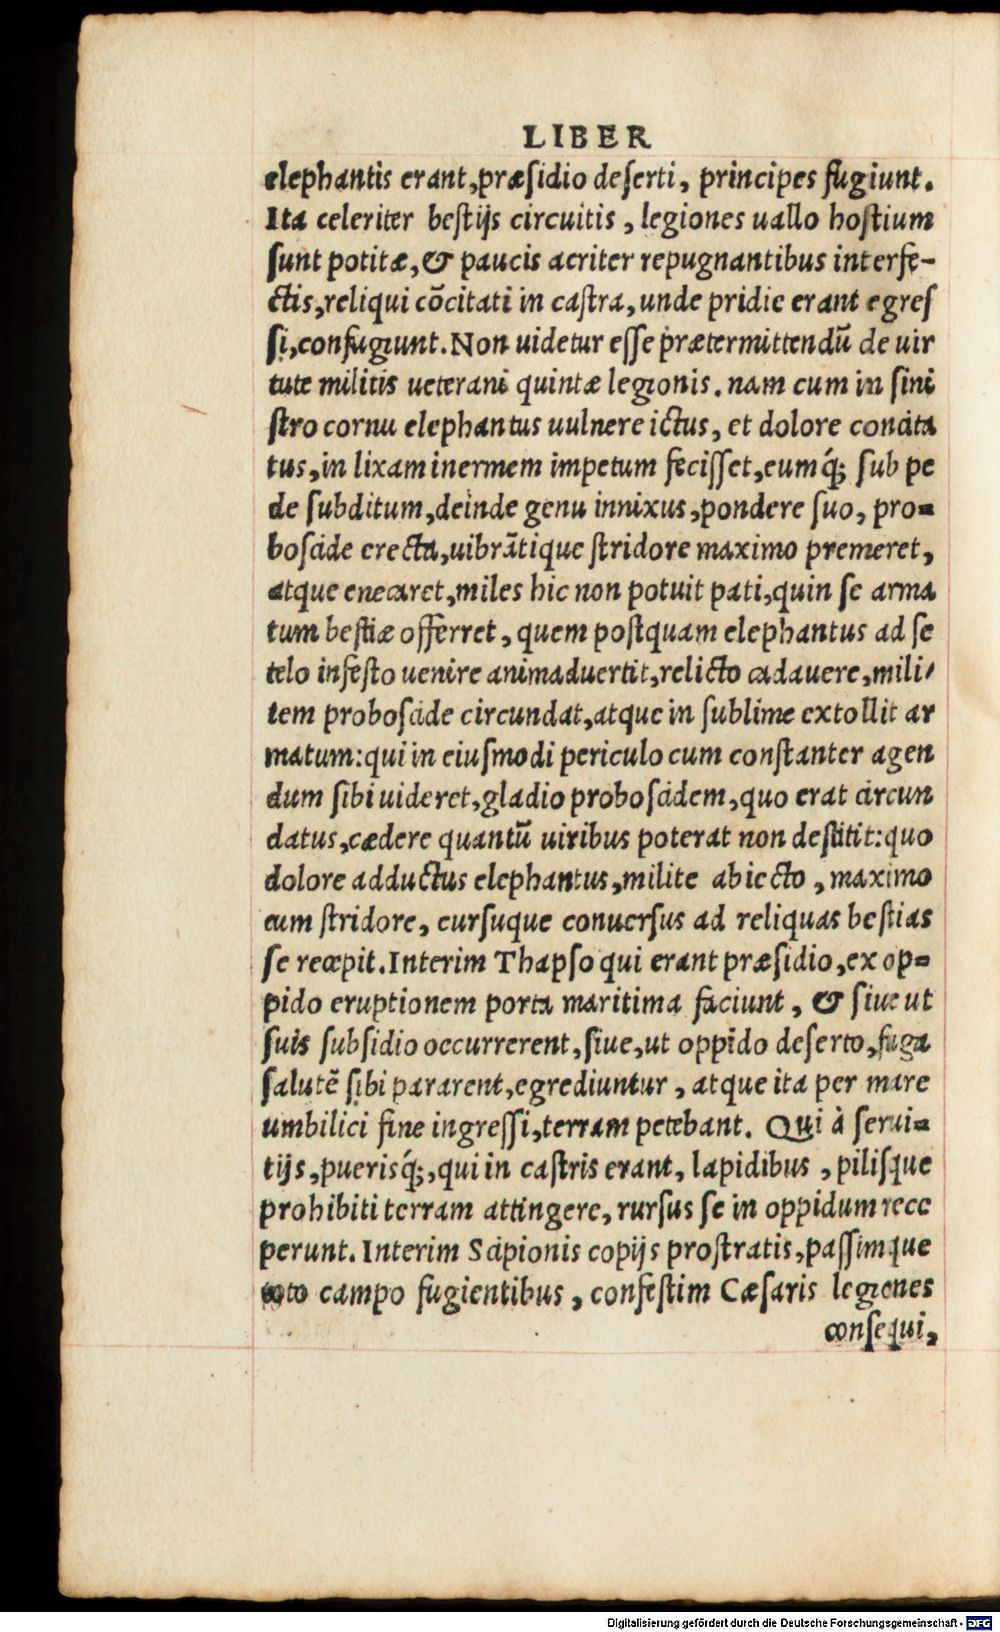 LIBER
elephantis erant, præsidio deserti, principes fugiunt.
Ita celeriter bestijs circuitis, legiones uallo hostium
sunt potitæ, & paucis acriter repugnantibus interfe-
ctis, reliqui cōcitati in castra, unde pridie erant egres
si, confugiunt. Non uidetur esse prætermittendū de uir
tute militis ueterani quintæ legionis. nam cum in sini
stro cornu elephantus uulnere ictus, et dolore concita
tus, in lixam inermem impetum fecisset, eumq́; sub pe
de subditum, deinde genu innixus, pondere suo, pro-
boscide erecta, uibrātique stridore maximo premeret,
atque enecaret, miles hic non potuit pati, quin se arma
tum bestiæ offerret, quem postquam elephantus ad se
telo infesto uenire animaduertit, relicto cadauere, mili-
tem proboscide circundat, atque in sublime extollit ar
matum: qui in eiusmodi periculo cum constanter agen
dum sibi uideret, gladio proboscidem, quo erat circun
datus, cædere quantū uiribus poterat non destitit: quo
dolore adductus elephantus, milite abiecto, maximo
cum stridore, cursuque conuersus ad reliquas bestias
se recepit. Interim Thapso qui erant præsidio, ex op-
pido eruptionem porta maritima faciunt, & siue ut
suis subsidio occurrerent, siue, ut oppido deserto, fuga
salutē sibi pararent, egrediuntur, atque ita per mare
umbilici fine ingressi, terram petebant. Qui à serui-
tijs, puerisq́;, qui in castris erant, lapidibus, pilisque
prohibiti terram attingere, rursus se in oppidum rece
perunt. Interim Scipionis copijs prostratis, passimque
toto campo fugientibus, confestim Cæsaris legiones
consequi,
Digitalisierung gefördert durch die Deutsche Forschungsgemeinschaft - DFG